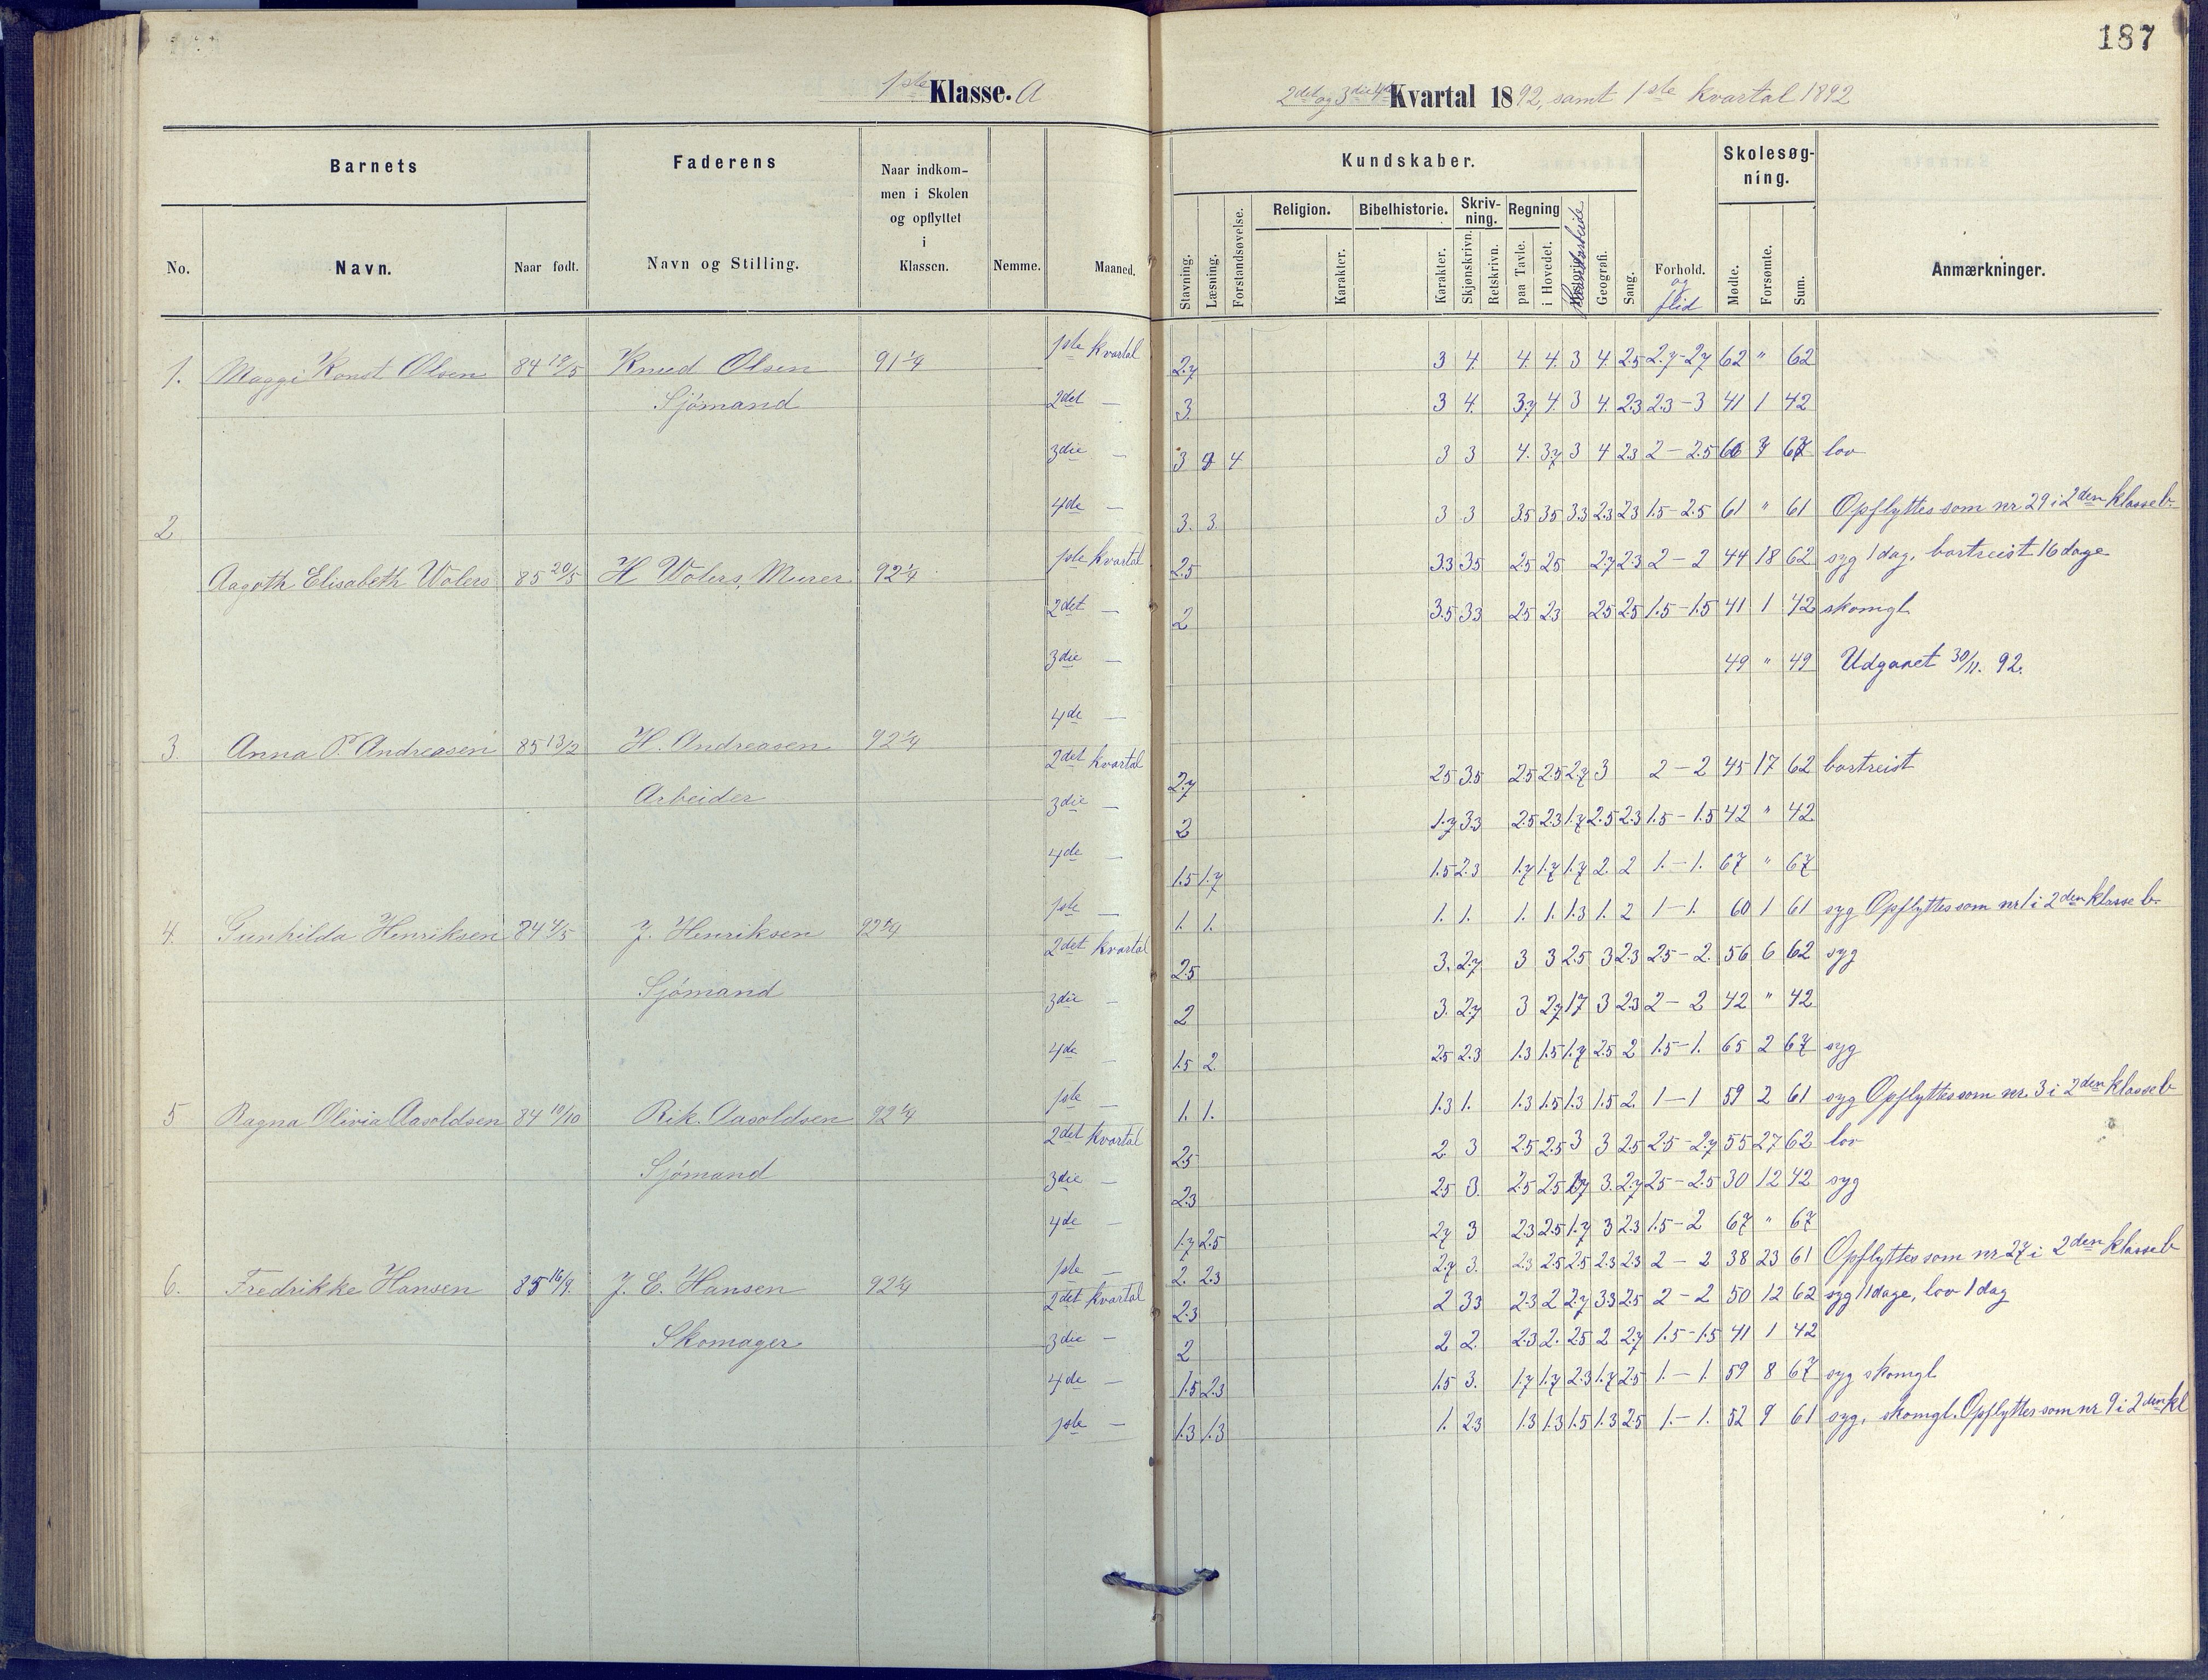 187
1ste Klasse. A
2det og 3die 4de Kvartal 1892, samt 1ste kvartal 1892
Barnets
Faderens
Naar indkom-
men i Skolen
og opflyttet
i
Klassen.
No.
Navn.
Naar født.
Navn og Stilling.
Nemme.
Maaned.
Kundskaber.
Skolesøg-
ning.
Religion.
Bibelhistorie.
Skriv-
ning.
Regning
Stavning.
Læsning.
Forstandsøvelse.
Karakter.
Karakter.
Skjønskrivn.
Retskrivn.
paa Tavle.
i Hovedet.
Haandarbeide
Geografi.
Sang.
Forhold.
og
flid
Mødte.
Forsømte.
Sum.
Anmærkninger.
1. Maggi Konst Olsen 84 19/5 Knud Olsen 91 1/4 1ste kvartal 2.7 3 4. 4. 4. 3 4. 2.5 2.7-2.7 62 " 62
Sjømand 2det — 3. 3 4. 3.7 4. 3 4. 2.3 2.3-3 41 1 42
3die — 3 4 3 3 4. 3.7 3 4 2.3 2-2.5 7 67 lov
4de — 3. 3. 3 3 3.5 3.5 3.3 2.3 2.3 1.5-2.5 61 " 61 Opflyttes som nr 29 i 2den klasse b.
2 Aagoth Elisabeth Wolers 85 20/5 H Wolers, Murer 92 1/4 1ste kvartal 2.5 3.3 3.5 2.5 2.5 2.7 2.3 2-2 44 18 62 syg 1 dag, bortreist 16 dage
2det — 2 3.5 3.3 2.5 2.3 2.5 2.5 1.5-1.5 41 1 42 skomgl
3die — 49 " 49 Udgaaet 30/11. 92.
4de —
3. Anna P. Andreasen 85 13/2 H. Andreasen 92 1/4 2det kvartal 2.7 2.5 3.5 2.5 2.5 2.7 3 2-2 45 17 62 bortreist
Arbeider 3die — 2 1.7 3.3 2.5 2.3 1.7 2.5 2.3 1.5-1.5 42 " 42
4de — 1.5 1.7 1.5 2.3 1.7 1.7 1.7 2. 2 1.-1. 67 " 67
1ste — 1. 1. 1. 1. 1. 1. 1.3 1. 2 1-1. 60 1 61 syg Opflyttes som nr 1 i 2den klasse b.
4. Gunhilda Henriksen 84 4/5 J. Henriksen 92 1/4 2det kvartal 2.5 3. 2.7 3 3 2.5 3 2.3 2.5-2. 56 6 62 syg
Sjømand 3die — 2 3. 2.7 3 2.7 1.7 3 2.3 2-2 42 " 42
4de — 1.5 2 2.5 2.3 1.3 1.5 1.7 2.5 2 1.5-1. 65 2 67 syg
1ste — 1. 1. 1.3 1. 1.3 1.5 1.3 1.5 2 1-1 59 2 61 syg Opflyttes som nr. 3 i 2den klasse b
5 Ragna Olivia Aasoldsen 84 19/10 Rik. Aasoldsen 92 1/4 2det kvartal 2.5 2 3 2.5 2.5 3 3 2.5 2.5-2.7 55 27 62 lov
Sjømand 3die — 2.3 2.5 3. 2.5 2.5 3. 2.7 2.5-2.5 30 12 42 syg
4de — 1.7 2.5 2.7 3 2.3 2.5 1.7 3 2.3 1.5-2 67 " 67
1ste — 2. 2.3 2.7 3. 2.3 2.5 2.5 2.3 2.3 2-2 38 23 61 Opflyttes som nr 27 i 2den klasse b
6. Fredrikke Hansen 85 16/9. J. E. Hansen 92 1/4 2det kvartal 2.3 2 3.3 2.3 2 2.7 3.3 2.5 2-2 50 12 62 syg 11 dage, lov 1 dag
Skomager 3die — 2 2 2. 2.3 2. 2.5 2 2.7 1.5-1.5 41 1 42
4de — 1.5 2.3 1.5 3. 1.7 1.7 2.3 1.7 2.5 1.-1. 59 8 67 syg skomgl
1ste — 1.3 1.3 1. 2.3 1.3 1.3 1.5 1.3 2.5 1.-1. 52 9 61 syg, skomgl. Opflyttes som nr 9 i 2den kl